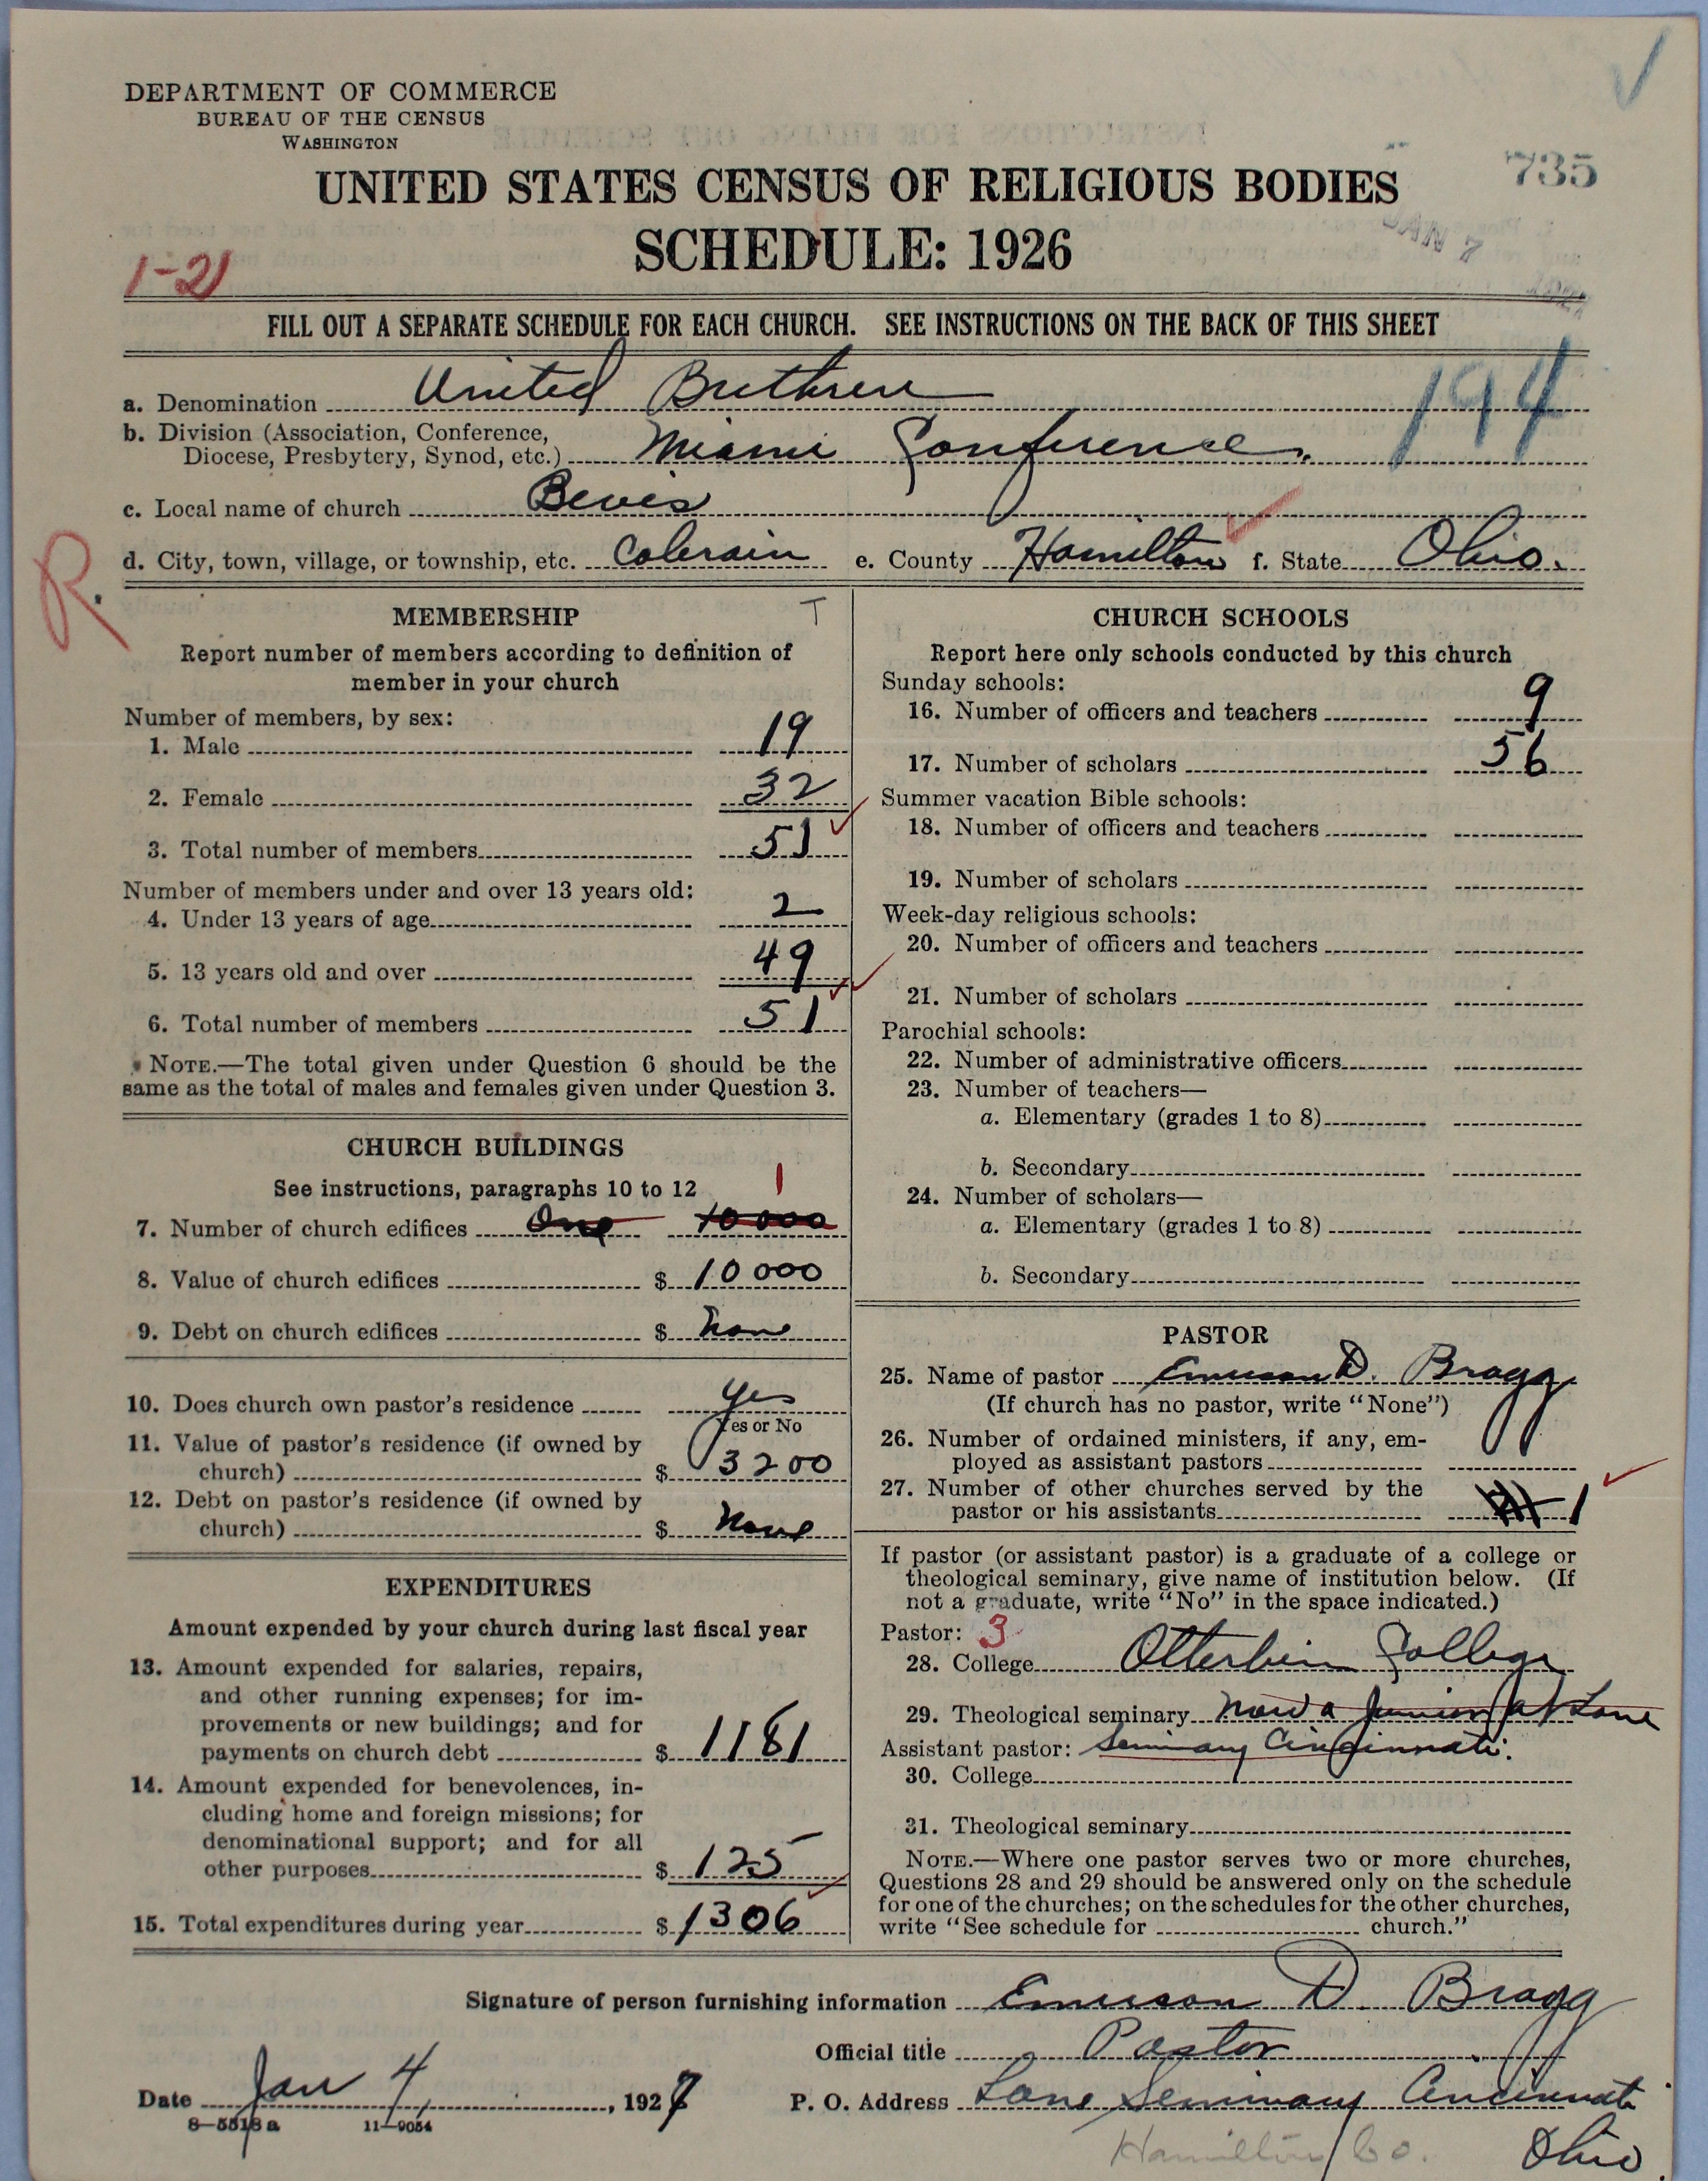 DEPARTMENT OF COMMERCE
BUREAU OF THE CENSUS
WASHINGTON
735
UNITED STATES CENSUS OF RELIGIOUS BODIES
JAN 7
SCHEDULE: 1926
1-21
FILL OUT A SEPARATE SCHEDULE FOR EACH CHURCH. SEE INSTRUCTIONS ON THE BACK OF THIS SHEET
194
a. Denomination United Brethren
b. Division (Association, Conference,
Diocese, Presbytery, Synod, etc.) Miami Conference.
c. Local name of church Bevis
d. City, town, village, or township, etc. Colerain e. County Hamilton f. State Ohio.
R.
MEMBERSHIP T
Report number of members according to definition of
member in your church
Number of members, by sex:
1. Male 19
2. Female 32
3. Total number of members 51
Number of members under and over 13 years old:
4. Under 13 years of age 2
5. 13 years old and over 49
6. Total number of members 51
NOTE.—The total given under Question 6 should be the
same as the total of males and females given under Question 3.
CHURCH BUILDINGS
See instructions, paragraphs 10 to 12 1
7. Number of church edifices One 10000
8. Value of church edifices $ 10000
9. Debt on church edifices $ none
10. Does church own pastor's residence Yes
Yes or No
11. Value of pastor's residence (if owned by
church) $ 3200
12. Debt on pastor's residence (if owned by
church) $ None
EXPENDITURES
Amount expended by your church during last fiscal year
13. Amount expended for salaries, repairs,
and other running expenses; for im-
provements or new buildings; and for
payments on church debt $ 1181
14. Amount expended for benevolences, in-
cluding home and foreign missions; for
denominational support; and for all
other purposes $ 125
15. Total expenditures during year $ 1306
CHURCH SCHOOLS
Report here only schools conducted by this church
Sunday schools:
16. Number of officers and teachers 9
17. Number of scholars 56
Summer vacation Bible schools:
18. Number of officers and teachers
19. Number of scholars
Week-day religious schools:
20. Number of officers and teachers
21. Number of scholars
Parochial schools:
22. Number of administrative officers
23. Number of teachers—
a. Elementary (grades 1 to 8)
b. Secondary
24. Number of scholars—
a. Elementary (grades 1 to 8)
b. Secondary
PASTOR
25. Name of pastor Emerson D. Bragg
(If church has no pastor, write "None")
26. Number of ordained ministers, if any, em-
ployed as assistant pastors
27. Number of other churches served by the
pastor or his assistants 1
If pastor (or assistant pastor) is a graduate of a college or
theological seminary, give name of institution below. (If
not a graduate, write "No" in the space indicated.)
Pastor: 3
28. College Otterbein College
29. Theological seminary Now a Junior at Lane
Assistant pastor: Seminary Cincinnati.
30. College
31. Theological seminary
NOTE.—Where one pastor serves two or more churches,
Questions 28 and 29 should be answered only on the schedule
for one of the churches; on the schedules for the other churches,
write "See schedule for church."
Signature of person furnishing information Emerson D. Bragg
Official title Pastor
Date Jan 4, 1927
P. O. Address Lane Seminary Cincinnati
8—5518 a 11—9054
Hamilton Co. Ohio.